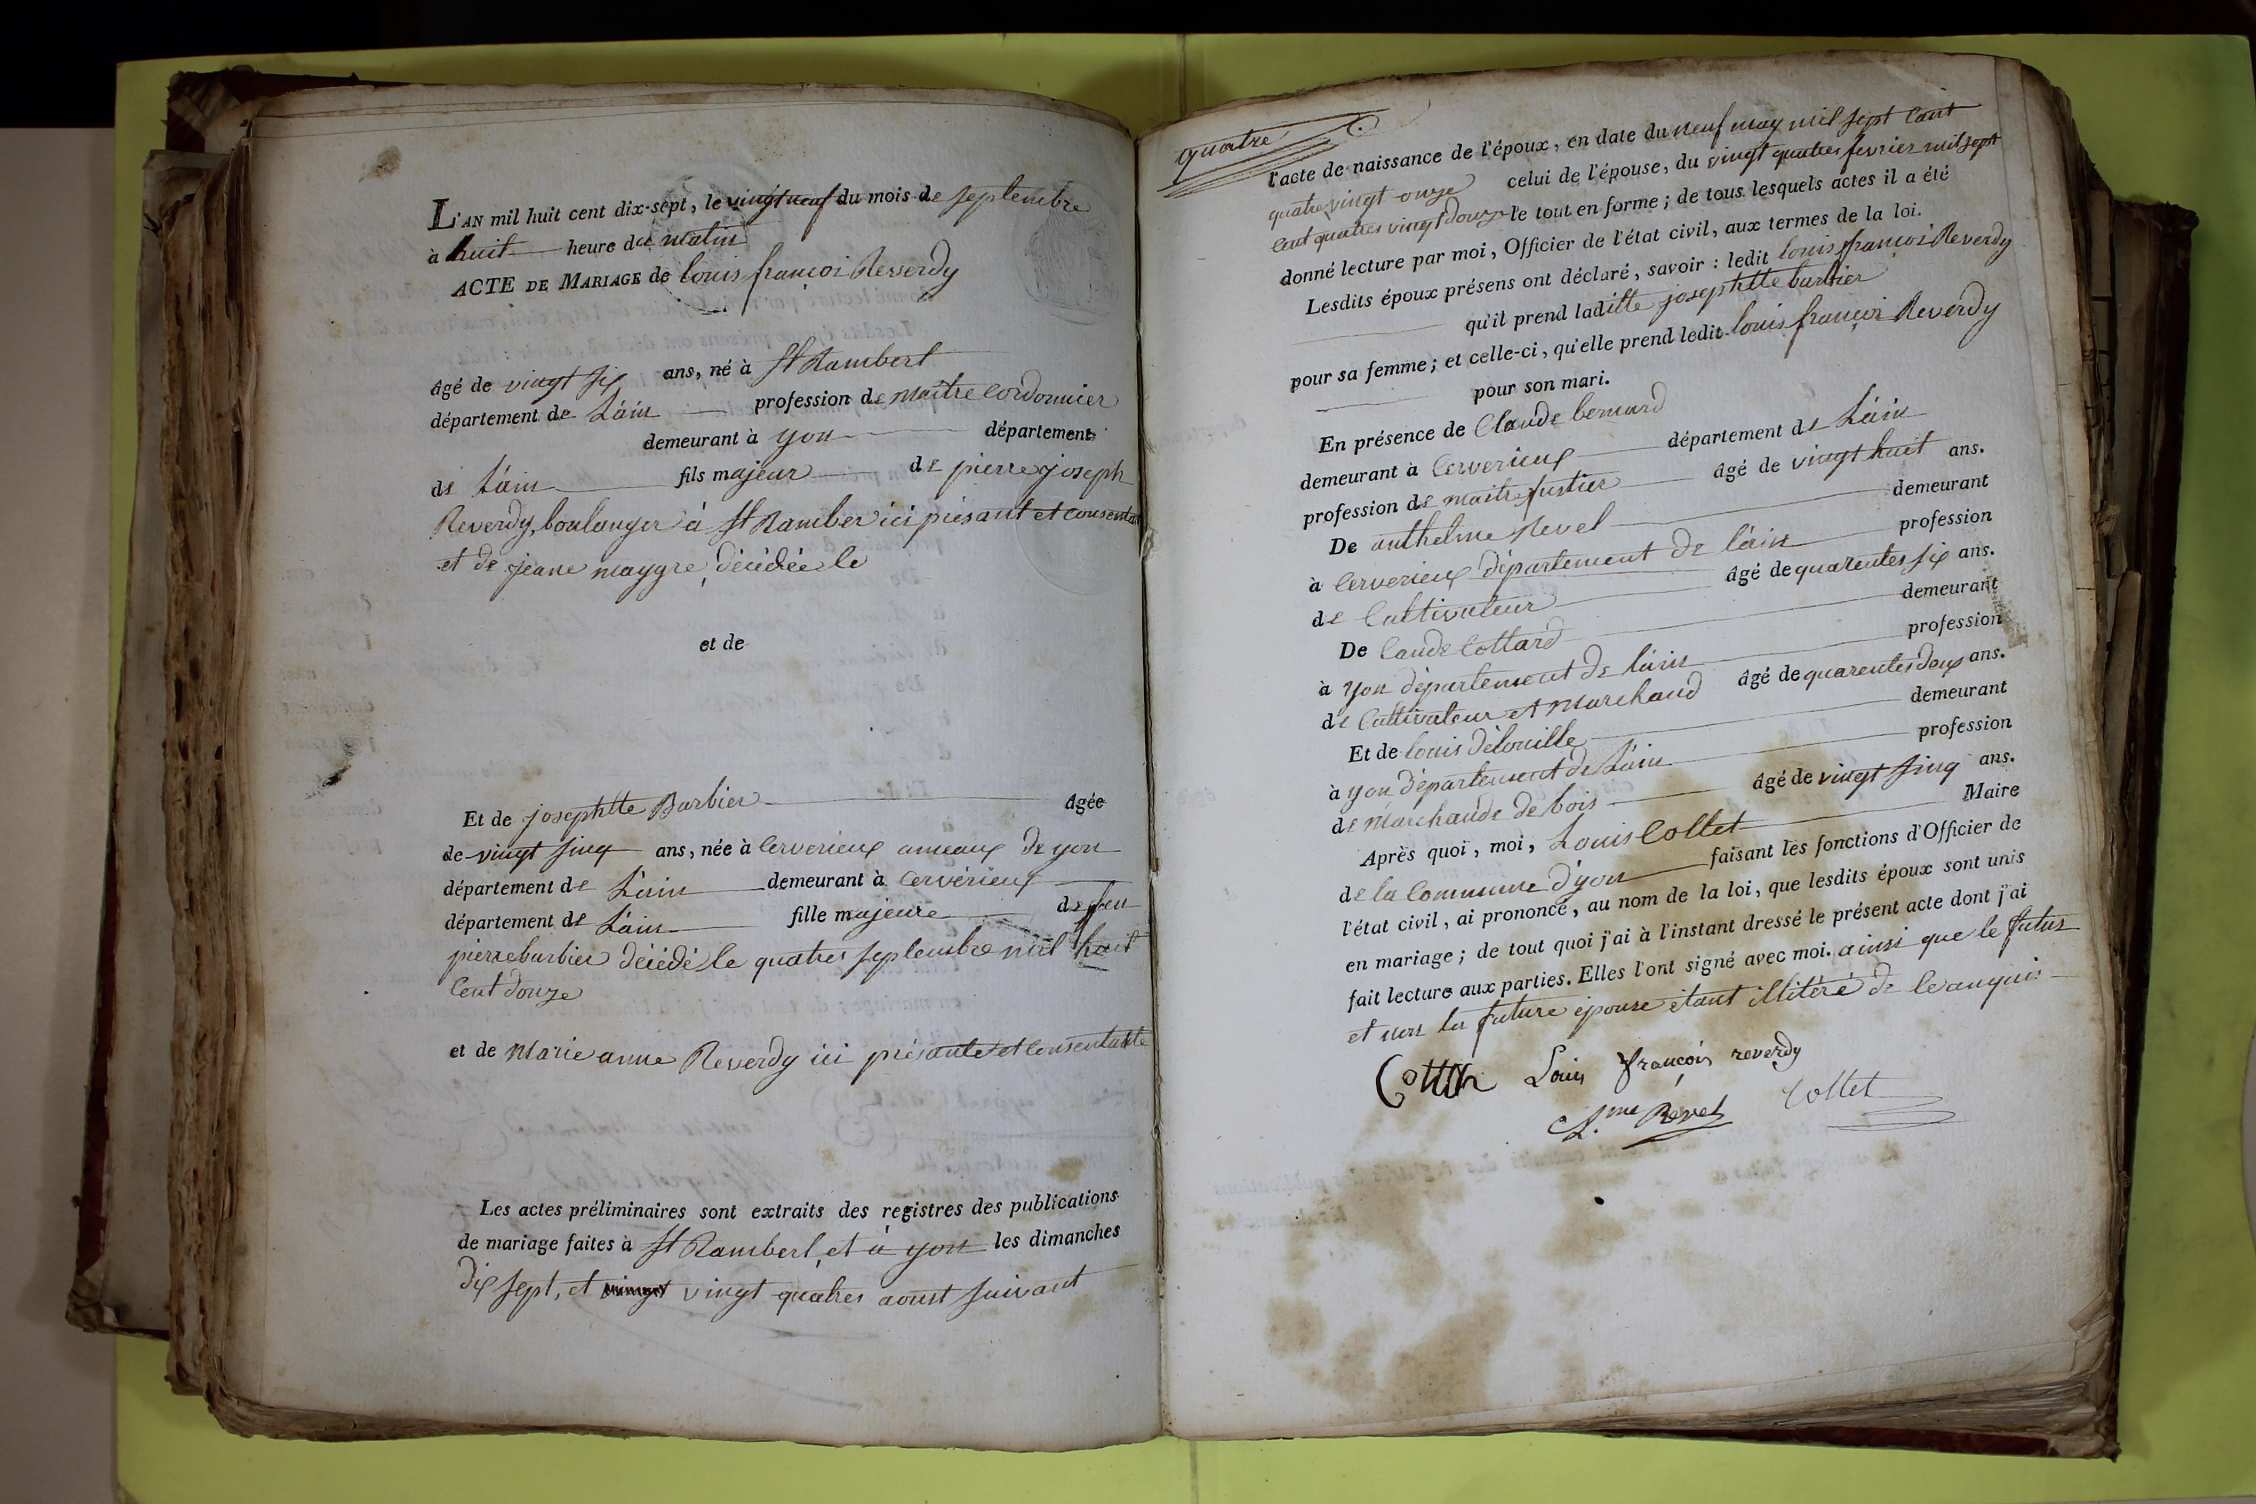 L'AN mil huit cent dix-sept, le vingt neuf du mois de septembre
à huit heure du matin
ACTE DE MARIAGE de louis françoi Reverdy
âgé de vingt six ans, né à St Rambert
département de L'ain profession de maitre Cordonnier
demeurant à yon département
de L'ain fils majeur de pierre joseph
Reverdy, boulanger à St Ramber ici présant et consentant
et de jeane maygre, décédée le
et de
Et de josephtte Barbier âgée
de vingt sinq ans, née à Cerverieux ameaux de yon
département de L'ain demeurant à Cervérieux
département de L'ain fille majeure de feu
pierre barbier décédé le quatres septembre mil huit
Cent douze
et de Marie anne Reverdy ici présante et Consentante
Les actes préliminaires sont extraits des registres des publications
de mariage faites à St Rambert, et à yon les dimanches
dix sept, et vingt quatres aoust suivant
quatre
l'acte de naissance de l'époux, en date du neuf may mil sept Cant
quatre vingt onze celui de l'épouse, du vingt quatres fevrier mil sept
Cent quatres vingt douze le tout en forme; de tous lesquels actes il a été
donné lecture par moi, Officier de l'état civil, aux termes de la loi.
Lesdits époux présens ont déclaré, savoir : ledit louis françoi Reverdy
qu'il prend laditte josephtte barbier
pour sa femme; et celle-ci, qu'elle prend ledit louis françoi Reverdy
pour son mari.
En présence de Claude bernard
demeurant à Cerverieux département de L'ain
profession de maitre fustier âgé de vingt huit ans.
De anthelme Revel demeurant
à Cerverieux département de l'ain profession
de Cultivateur âgé de quarentes six ans.
De Caude Cottard demeurant
à yon département de l'ain profession
de Cultivateur et Marchand âgé de quarentes deux ans.
Et de louis délouille demeurant
à yon département de L'ain profession
de Marchande de bois âgé de vingt sinq ans.
Après quoi, moi, Louis Collet Maire
de la Commune d'yon faisant les fonctions d'Officier de
l'état civil, ai prononcé, au nom de la loi, que lesdits époux sont unis
en mariage; de tout quoi j'ai à l'instant dressé le présent acte dont j'ai
fait lecture aux parties. Elles l'ont signé avec moi. ainsi que le futur
et non la future épouse étant illitéré de ce anquis
Louis françois reverdy
Revel Collet